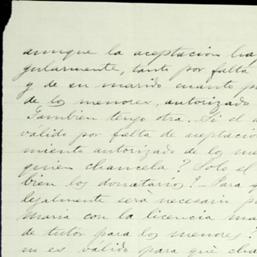 aunque la aceptacion ha
gularmente, tanto por falta
y de su marido cuanto p
de los menores, autorizado
Tambien tengo otra. Si el a
valido por falta de aceptacio
miento autorizado de los me
quien chancela? Solo el
bien los donatarios? Para q
legalmente sera necesario p
Maria con la licencia ma
de tutor para los menores?
no es válido para qué cha